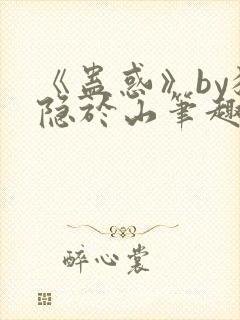 《蛊惑》by
隐于山笔趣
醉心裳